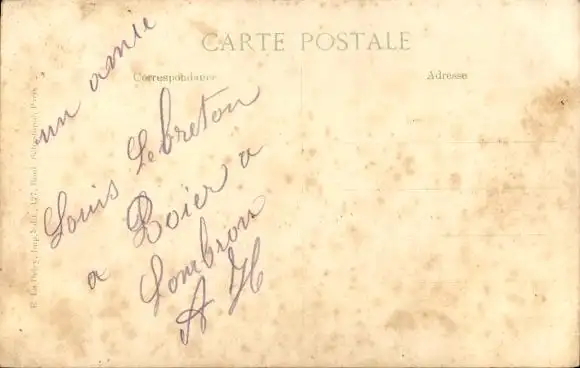 CARTE POSTALE
Correspondance
Adresse
un amie
Louis Lebreton
a Roier a
Lombron
A H
E. Le Deley, Imp.-Edit., 127, Boul. Sébastopol, Paris